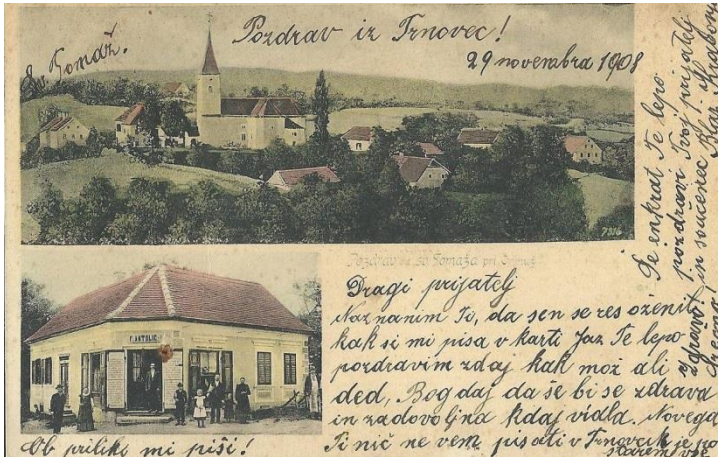 Sv. Tomaž.
Pozdrav iz Trnovec!
29 novembra 1908
7316
Pozdrav sv. Tomaža pri
Dragi prijatelj
Naznanim Ti, da sen se res oženil
kak si mi pisa v karti Jaz Te lepo
pozdravim zdaj kak mož ali
ded, Bog daj da še bi se zdrava
in zadovoljna kdaj vidla. Novega
Ti nič ne vem pisati v Trnovcih je po
starem vse
Ob priliki mi piši!
Še enkrat Te lepo
pozdravi Tvoj prijatelj
in
F. ANTOLIČ